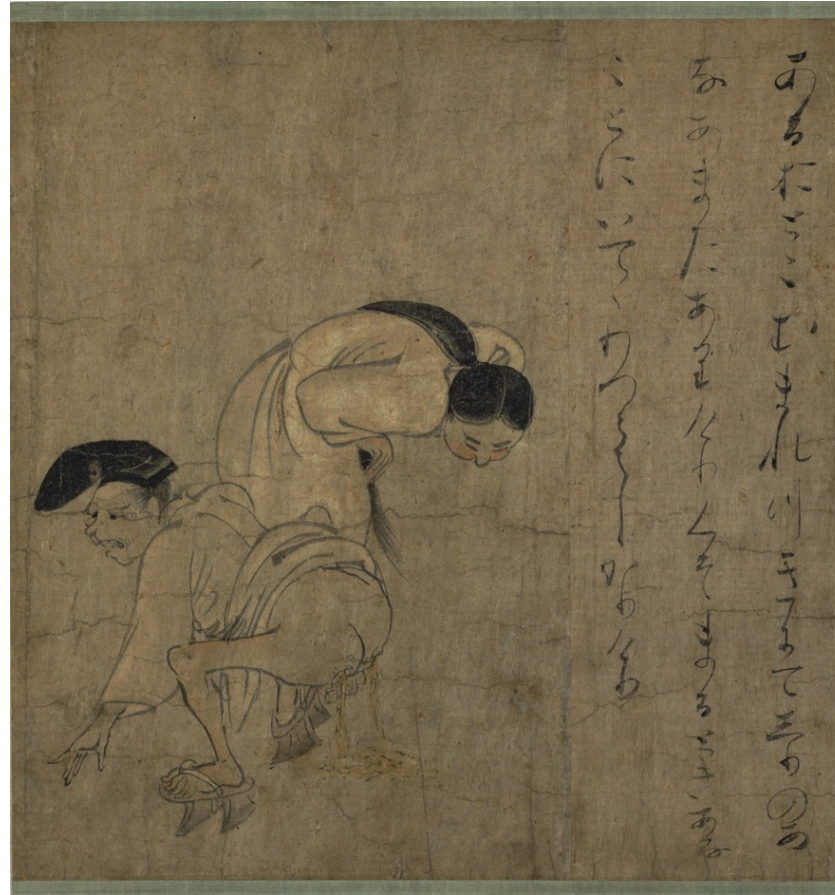 あるおとこむまれつきにてしりのあ
なあまたありけりくそまるときあな
ことにいてゝわつらはしかりけり